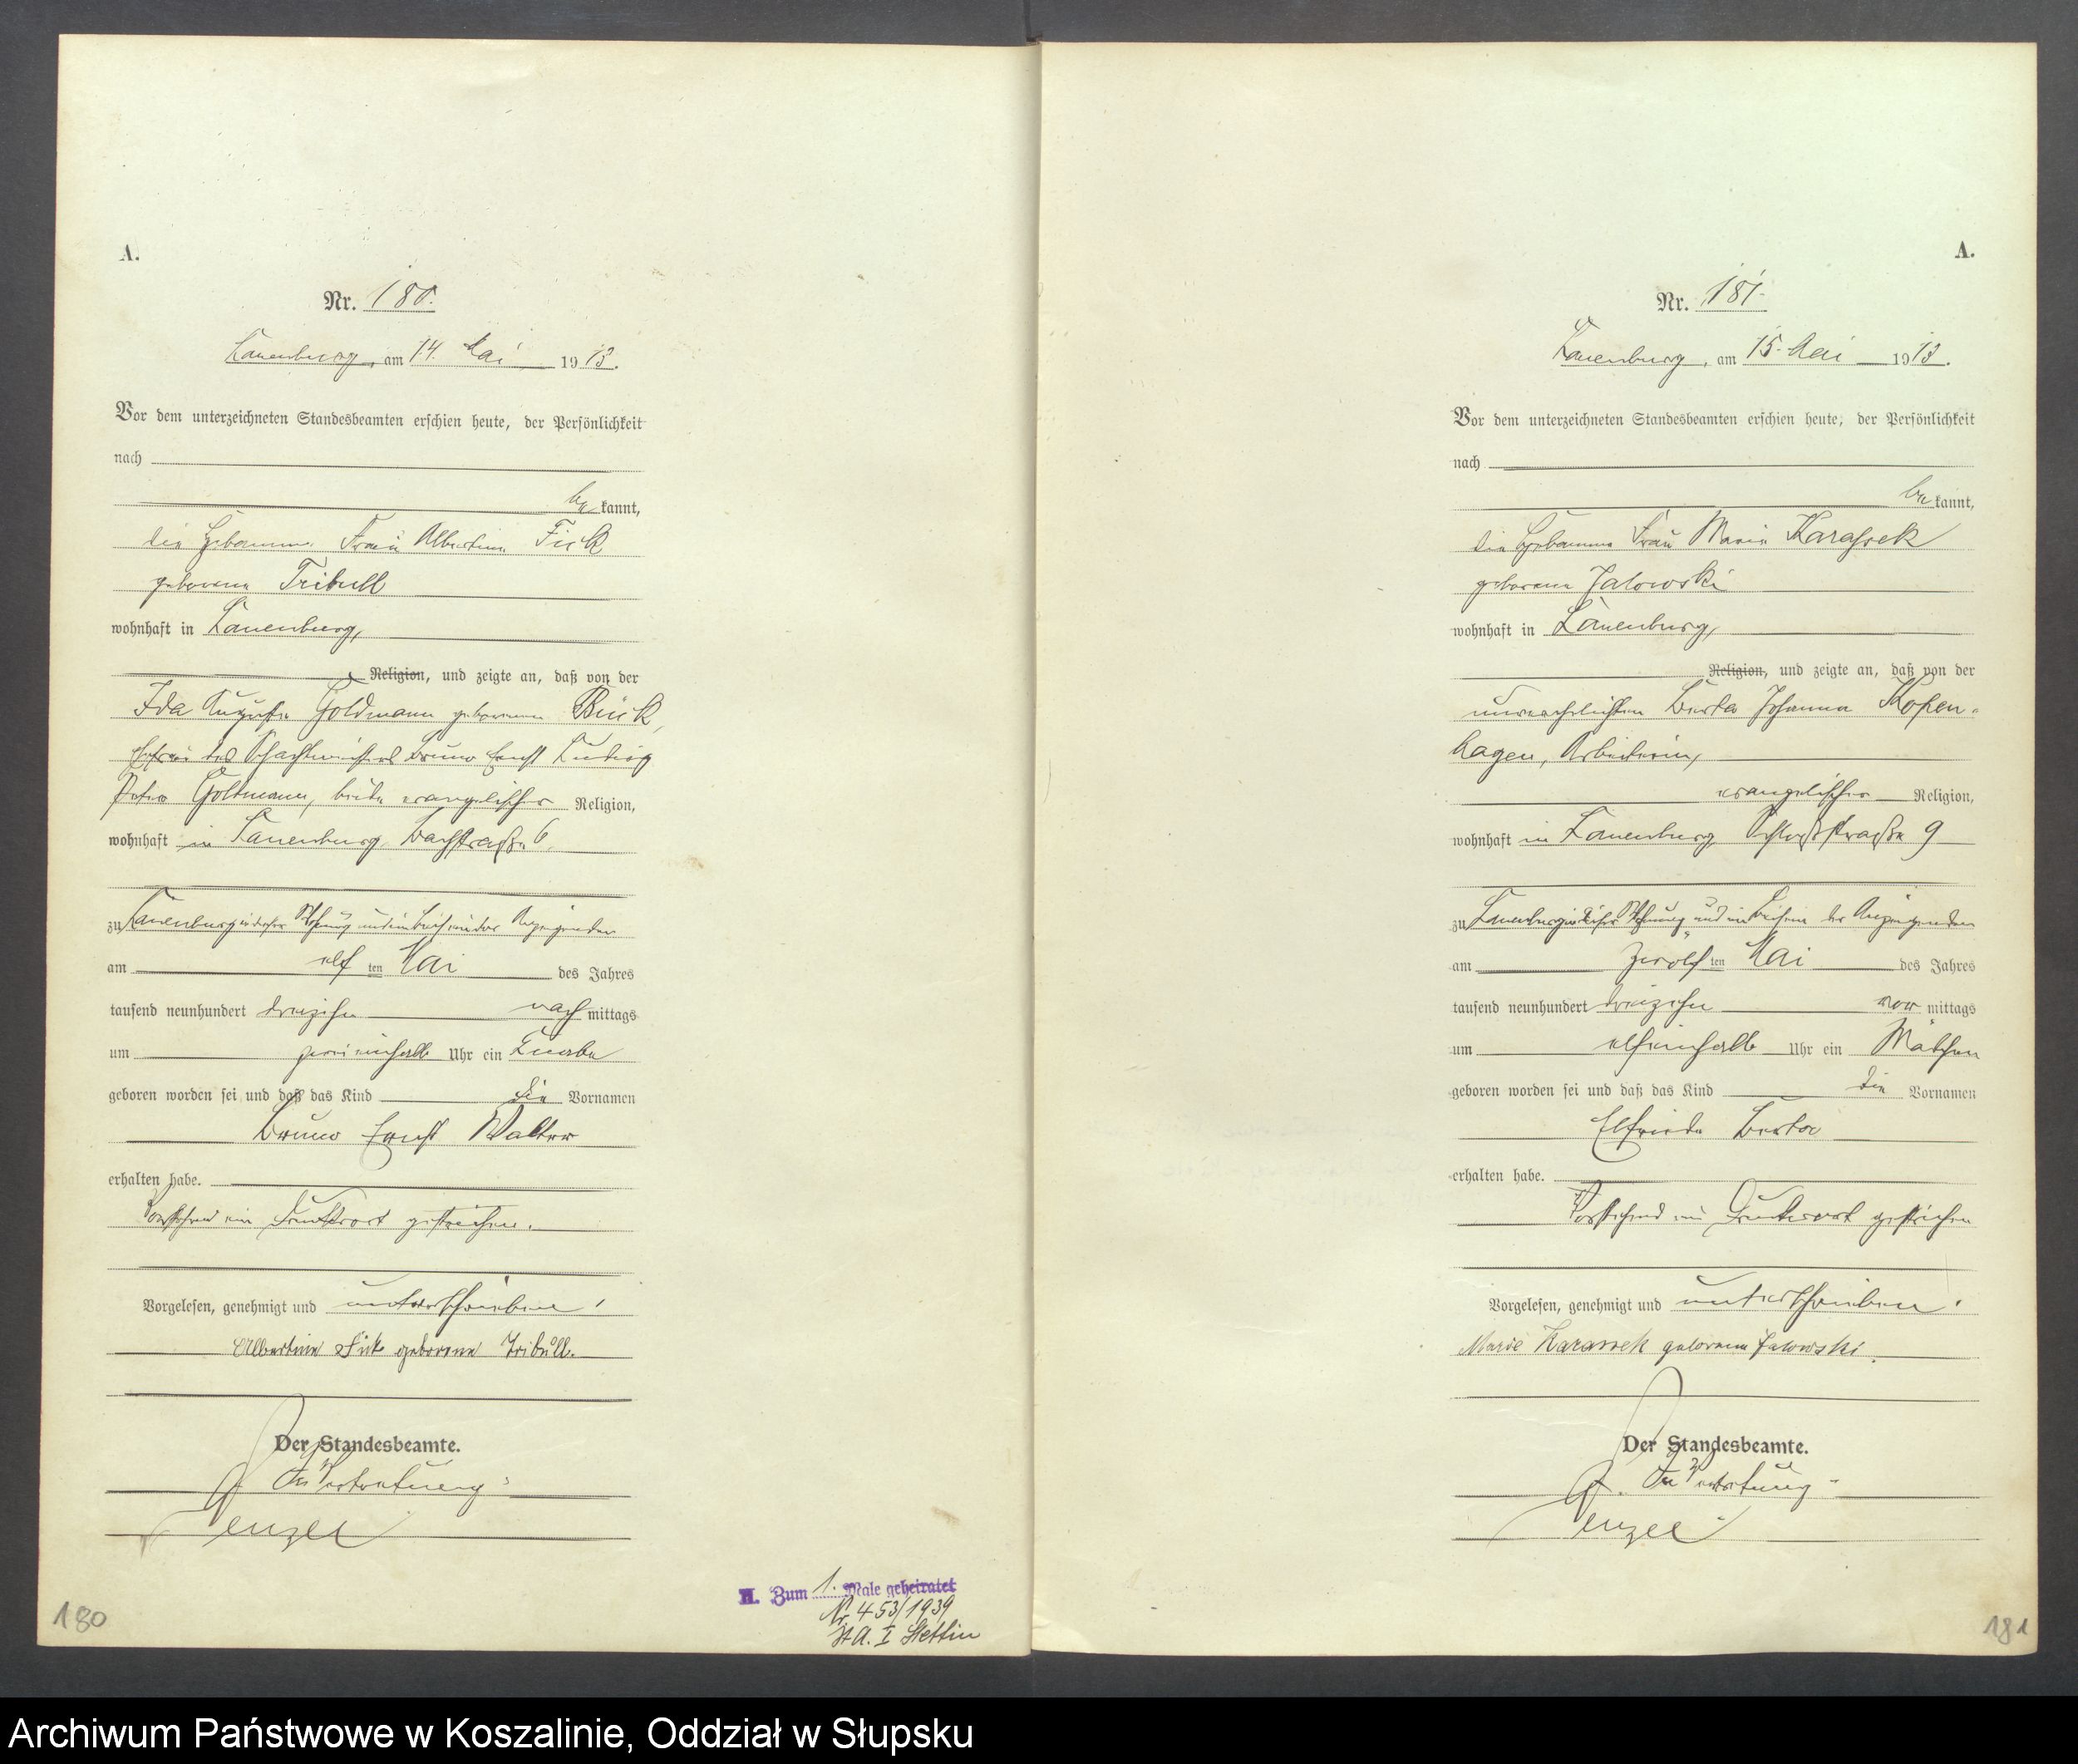 A.
Nr. 180.
Lauenburg, am 14. Mai 1913.
Vor dem unterzeichneten Standesbeamten erschien heute, der Persönlichkeit
nach
be kannt,
die Hebamme Frau Albertine Fick
geborene Tribull
wohnhaft in Lauenburg,
Religion, und zeigte an, daß von der
Ida Auguste Goldmann geborenen Bück,
Ehefrau des Schachtmeisters Bruno Ernst Ludwig
Goldmann, beide evangelischer Religion,
wohnhaft in Lauenburg, Bachstraße 6,
zu Lauenburg in dieser Wohnung und im Beisein der Anzeigenden
am elf ten Mai des Jahres
tausend neunhundert dreizehn nach mittags
um zweieinhalb Uhr ein Knabe
geboren worden sei und daß das Kind die Vornamen
Bruno Ernst Walter
erhalten habe.
Vorstehend ein Druckwort gestrichen.
Vorgelesen, genehmigt und unterschrieben
Albertine Fick geborene Tribull.
Der Standesbeamte.
In Vertretung:
180
II. Zum 1. Male geheiratet
Nr. 453/1939
StA. I Stettin
A.
Nr. 181.
Lauenburg, am 15. Mai 1913.
Vor dem unterzeichneten Standesbeamten erschien heute, der Persönlichkeit
nach
be kannt,
die Hebamme Frau Marie Karassek
geborene Jalowski
wohnhaft in Lauenburg,
Religion, und zeigte an, daß von der
unverehelichten Berta Johanna Kopen-
hagen, Arbeiterin,
evangelischer Religion,
wohnhaft in Lauenburg, Schloßstraße 9
zu Lauenburg in dieser Wohnung und im Beisein der Anzeigenden
am zwölf ten Mai des Jahres
tausend neunhundert dreizehn vor mittags
um elfeinhalb Uhr ein Mädchen
geboren worden sei und daß das Kind die Vornamen
Elfriede Berta
erhalten habe.
Vorstehend ein Druckwort gestrichen
Vorgelesen, genehmigt und unterschrieben
Marie Karassek geborene Jalowski
Der Standesbeamte.
In Vertretung:
181
Archiwum Państwowe w Koszalinie, Oddział w Słupsku